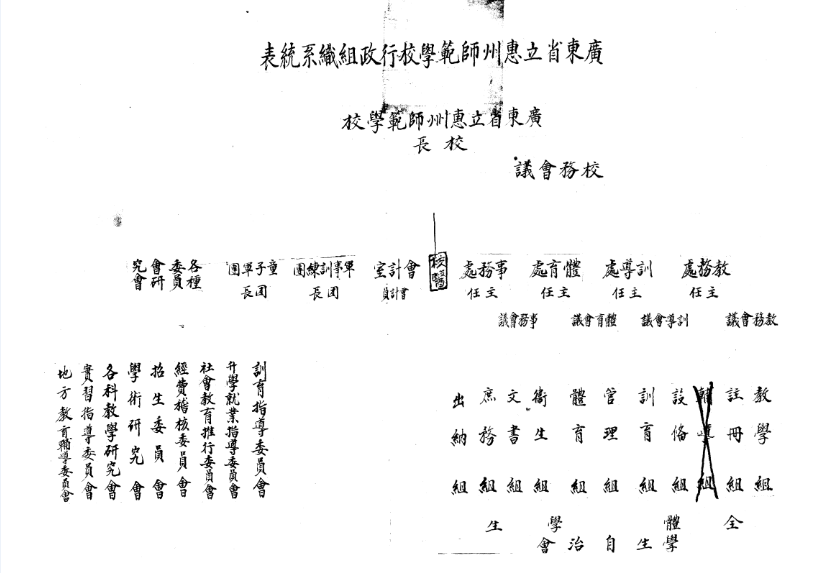 廣東省立惠州師範學校行政組織系統表
廣東省立惠州師範學校
校長
校務會議
教務處
主任
訓導處
主任
體育處
主任
事務處
主任
校醫
會計室
會計員
軍事訓練團
團長
童子軍團
團長
各種委員會研究會
教務會議
訓導會議
體育會議
事務會議
教學組
註冊組
輔導組
設備組
訓育組
管理組
體育組
衛生組
文書組
庶務組
出納組
訓育指導委員會
升學就業指導委員會
社會教育推行委員會
經費稽核委員會
招生委員會
學術研究會
各科教學研究會
實習指導委員會
地方教育輔導委員會
全體學生
學生自治會